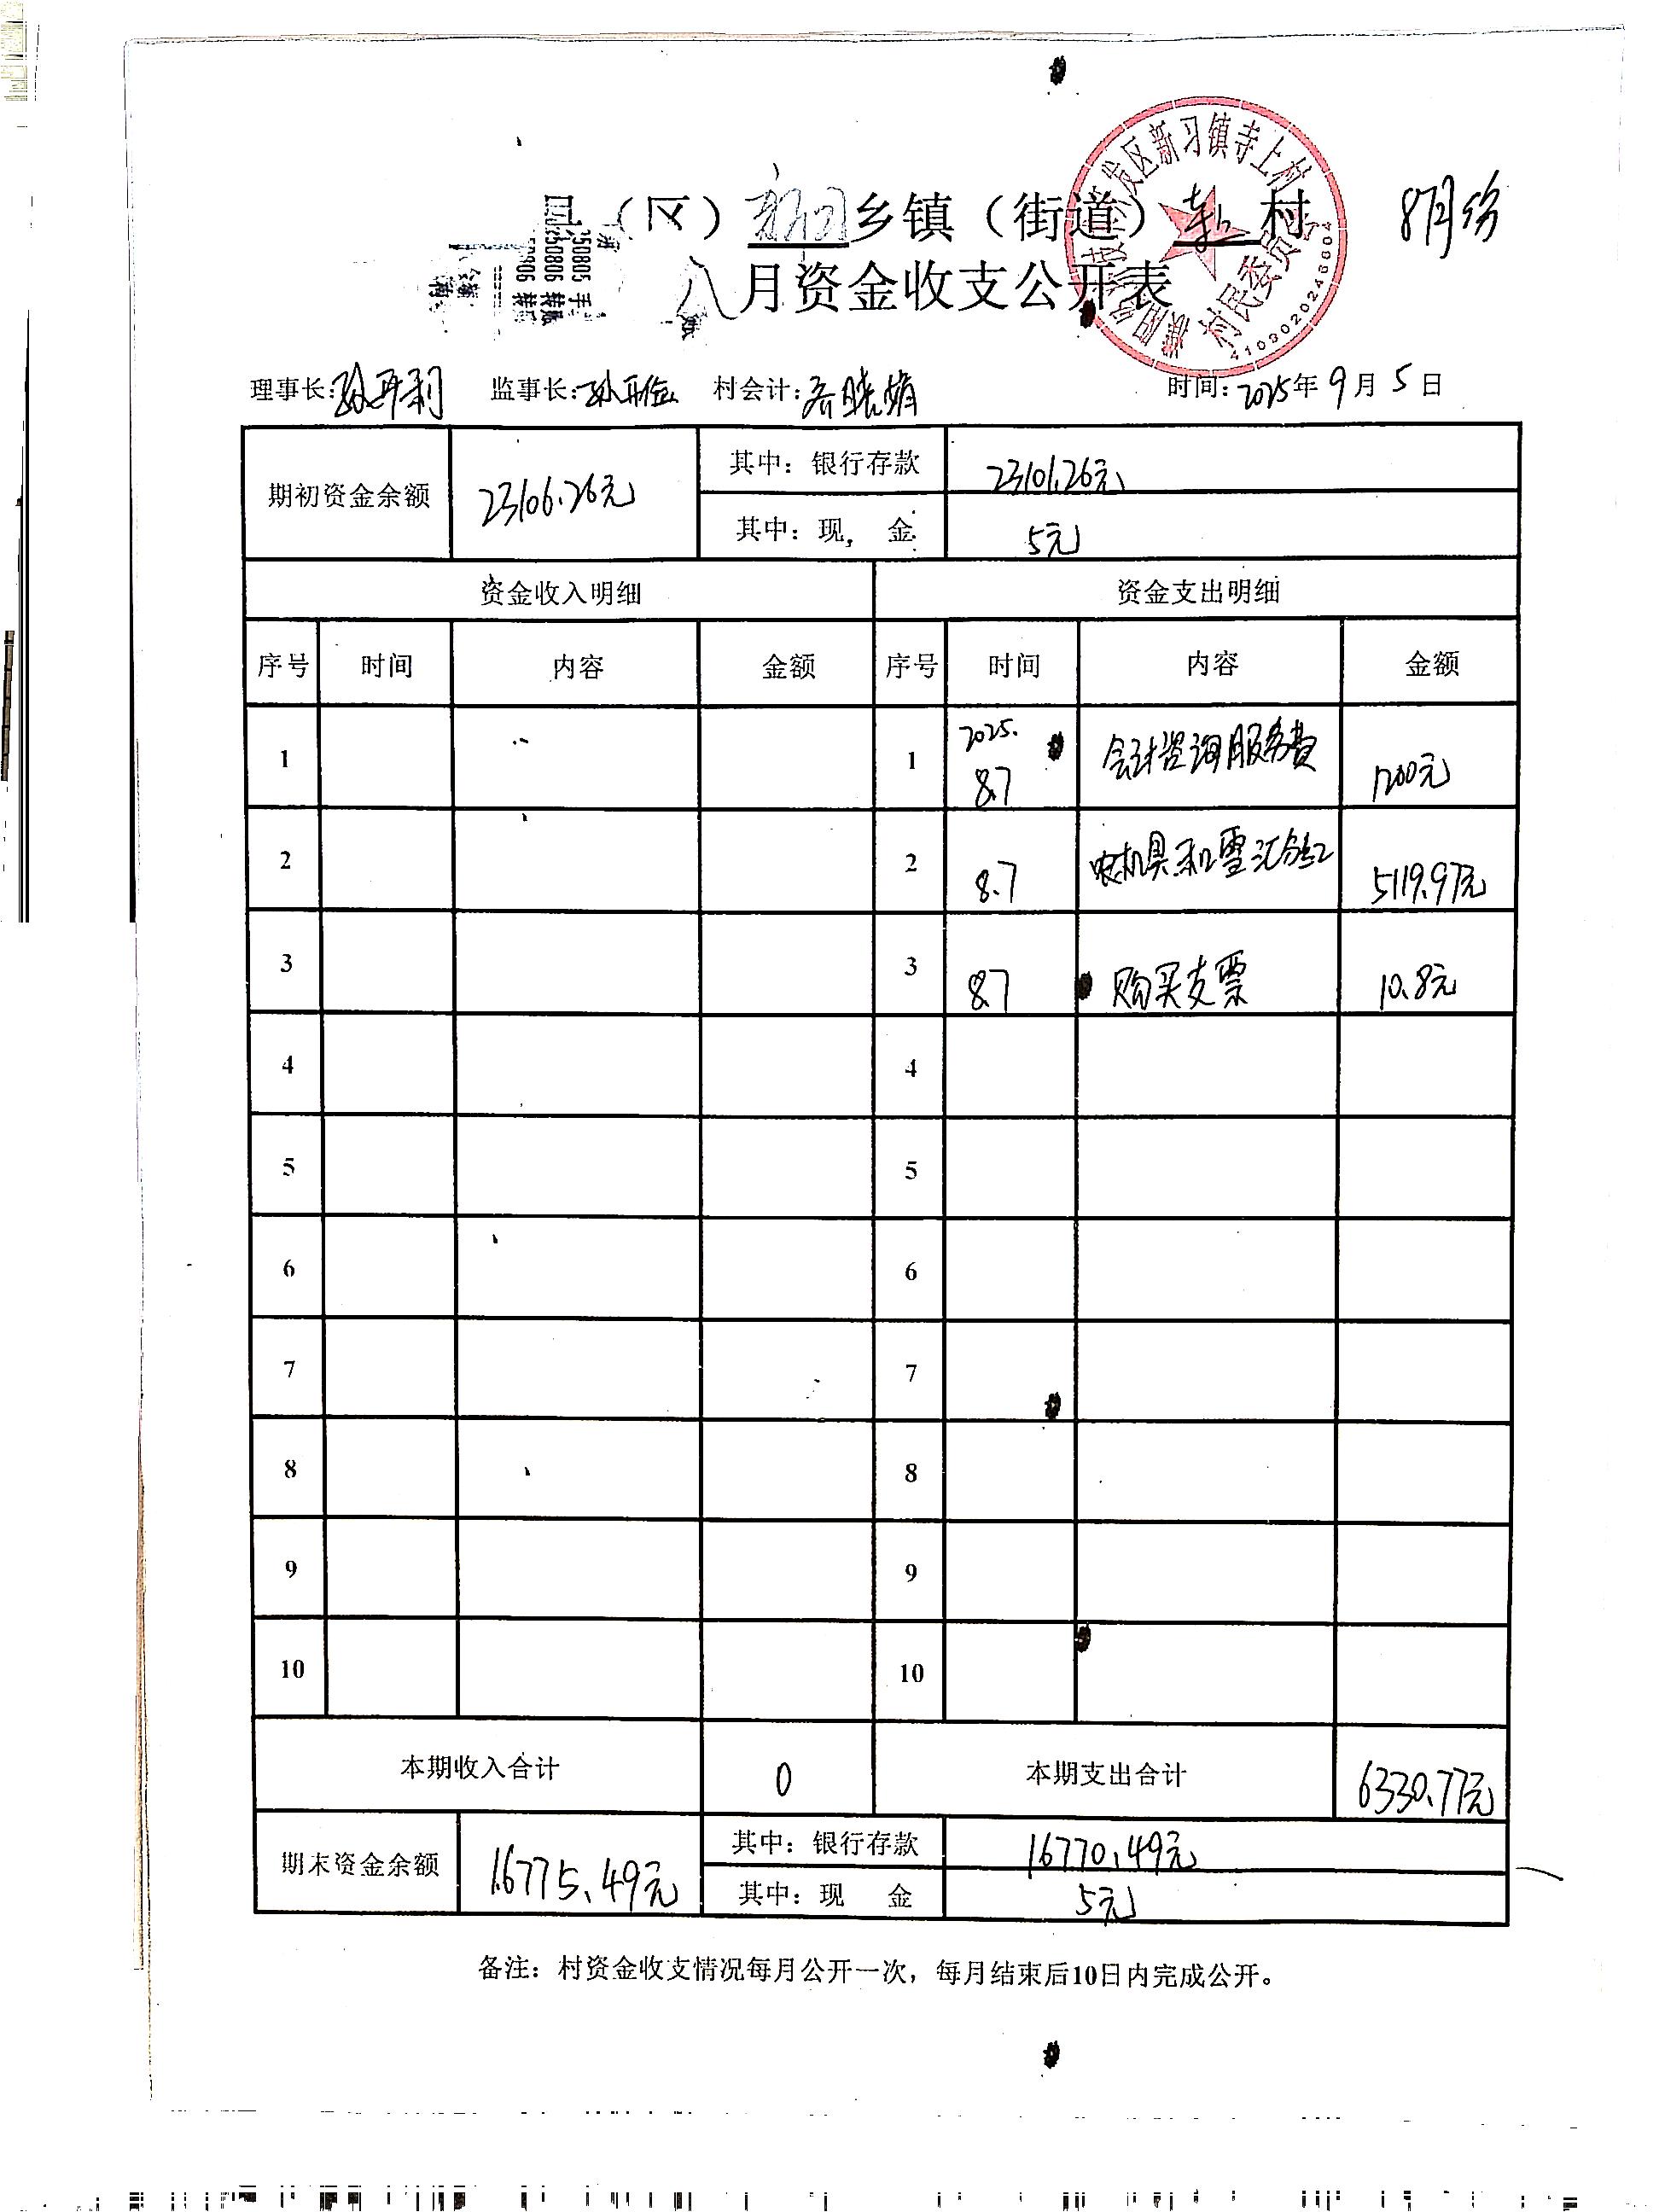 8月份
县（区）新习乡镇（街道）寺上村
八月资金收支公开表
开发区新习镇寺上村
村民委员会
4109020246804
250805 手
250806 转账
理事长： 监事长： 村会计：齐晓娟 时间：2025年9月5日
期初资金余额 23106.26元 其中：银行存款 23101.26元
其中：现 金 5元
资金收入明细 资金支出明细
序号 时间 内容 金额 序号 时间 内容 金额
1 1 2025.8.7 会计咨询服务费 1200元
2 2 8.7 农机具和雪汇分红 5119.97元
3 3 8.7 购买支票 10.8元
4 4
5 5
6 6
7 7
8 8
9 9
10 10
本期收入合计 0 本期支出合计 6330.77元
期末资金余额 16775.49元 其中：银行存款 16770.49元
其中：现 金 5元
备注：村资金收支情况每月公开一次，每月结束后10日内完成公开。